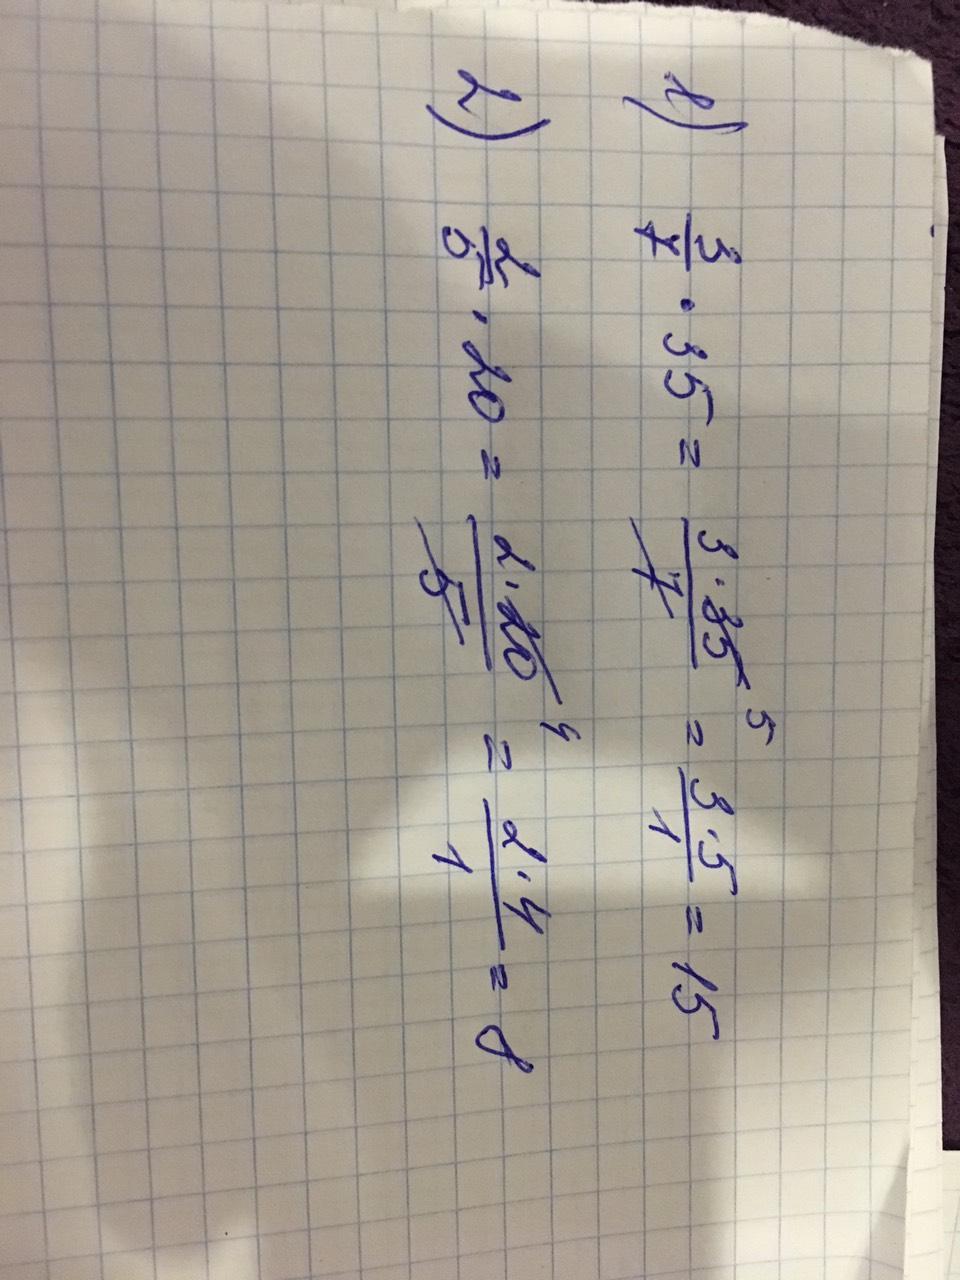 1) 3/7 · 35 = 3·35/7 5 = 3·5/1 = 15
2) 2/5 · 20 = 2·20/5 4 = 2·4/1 = 8